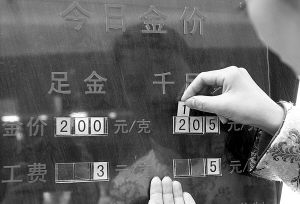 今日金价
足金 千足
金价 200 元/克 205 元/克
工费 3 元/克 5 元/克